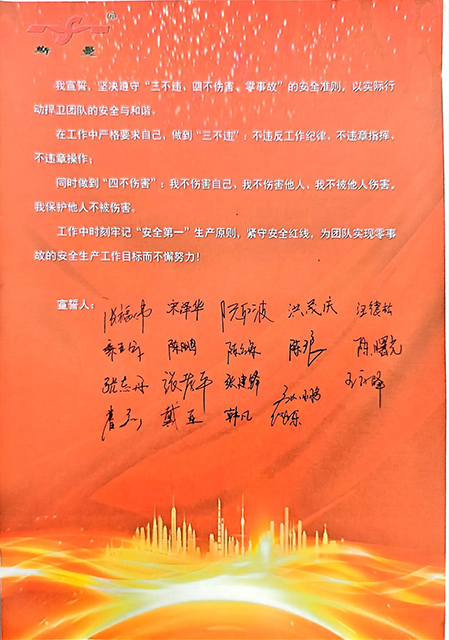 斯曼
我宣誓，坚决遵守“三不违、四不伤害、零事故”的安全准则，以实际行
动捍卫团队的安全与和谐。
在工作中严格要求自己，做到“三不违”：不违反工作纪律、不违章指挥、
不违章操作；
同时做到“四不伤害”：我不伤害自己、我不伤害他人、我不被他人伤害、
我保护他人不被伤害。
工作中时刻牢记“安全第一”生产原则，紧守安全红线，为团队实现零事
故的安全生产工作目标而不懈努力！
宣誓人： 宋泽华 洪茂庆 汪德松
陈鹏 陈琅 陈曙光
张志丹 张建锋
戴亚 韩凡